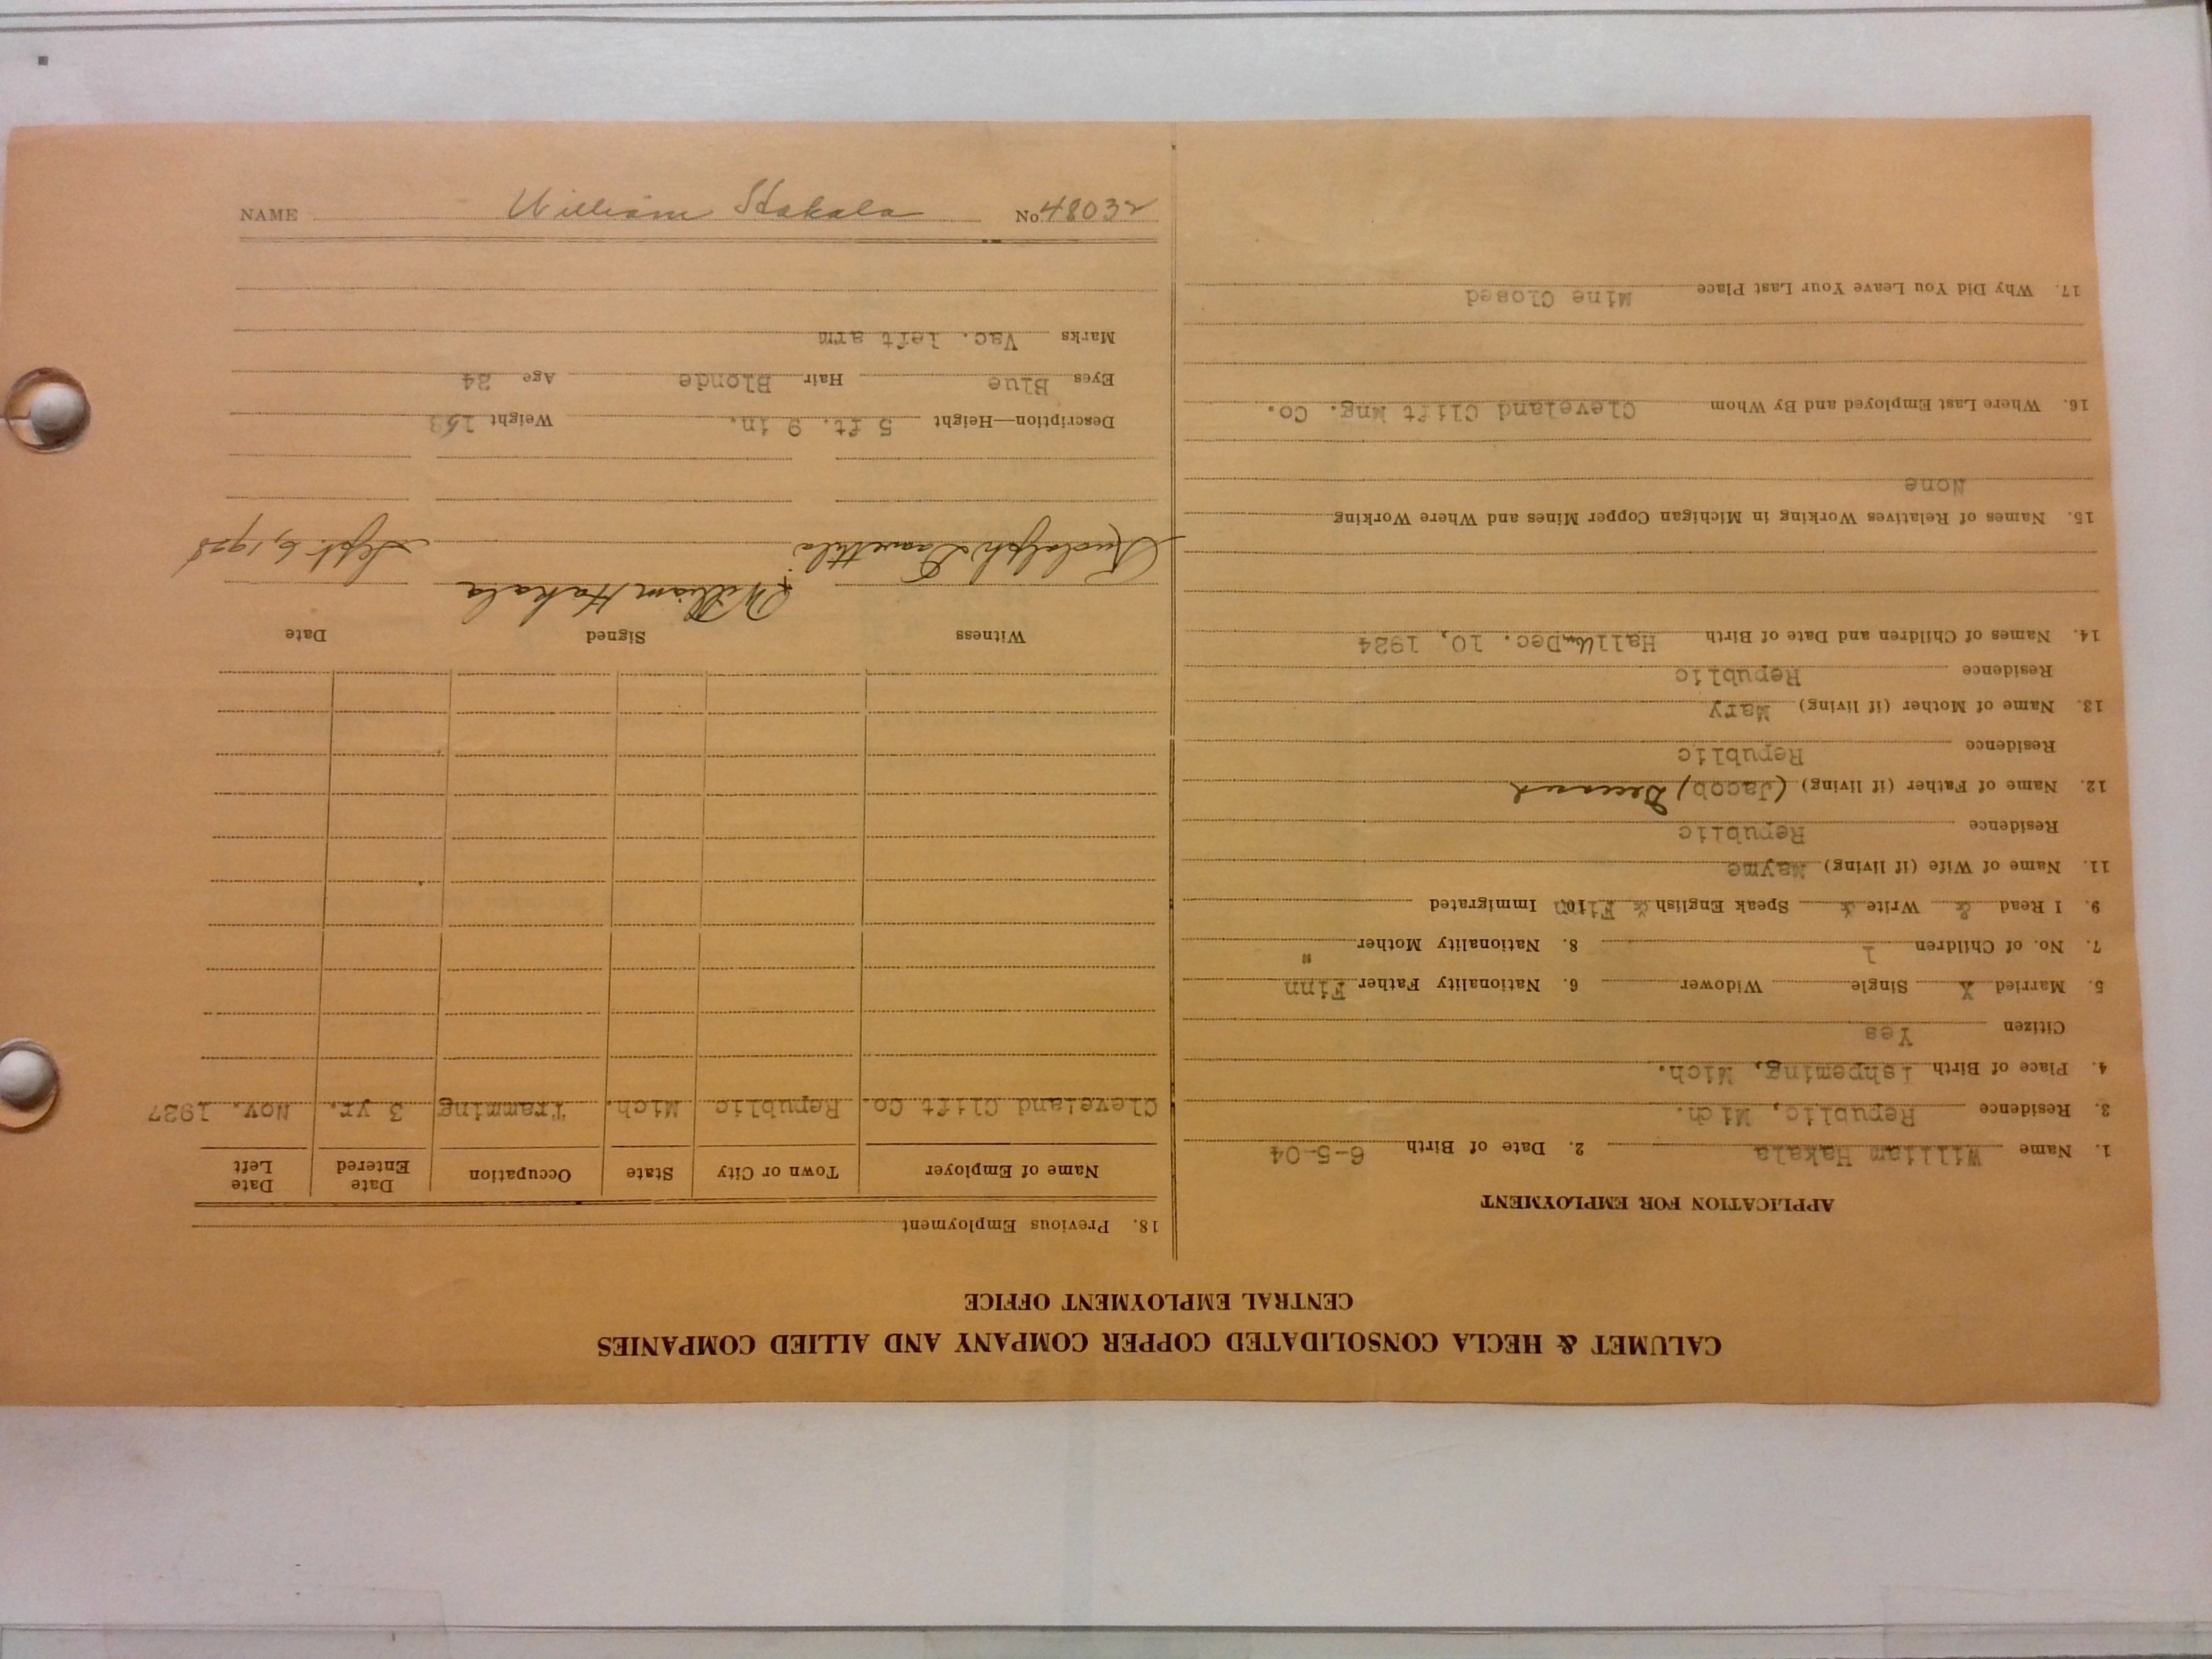 CALUMET & HECLA CONSOLIDATED COPPER COMPANY AND ALLIED COMPANIES
CENTRAL EMPLOYMENT OFFICE
APPLICATION FOR EMPLOYMENT
1. Name William Hakala 2. Date of Birth 6-5-04
3. Residence Republic, Mich.
4. Place of Birth Ishpeming, Mich.
Citizen Yes
5. Married X Single Widower 6. Nationality Father Finn
7. No. of Children 1 8. Nationality Mother "
9. I Read & Write & Speak English & Finn 10. Immigrated
11. Name of Wife (if living) Mayme
Residence Republic
12. Name of Father (if living) (Jacob) Deceased
Residence Republic
13. Name of Mother (if living) Mary
Residence Republic
14. Names of Children and Date of Birth Dec. 10, 1924
15. Names of Relatives Working in Michigan Copper Mines and Where Working
None
16. Where Last Employed and By Whom Cleveland Clift Mng. Co.
17. Why Did You Leave Your Last Place Mine Closed
18. Previous Employment
Name of Employer Town or City State Occupation Date Entered Date Left
Cleveland Clift Co. Republic Mich. Tramming 3 yr. Nov. 1927
Witness Signed Date
Rudolph William Hakala Sept. 6, 1928
Description—Height 5 ft. 9 in. Weight 153
Eyes Blue Hair Blonde Age 24
Marks Vac. left arm
NAME William Hakala No. 48032